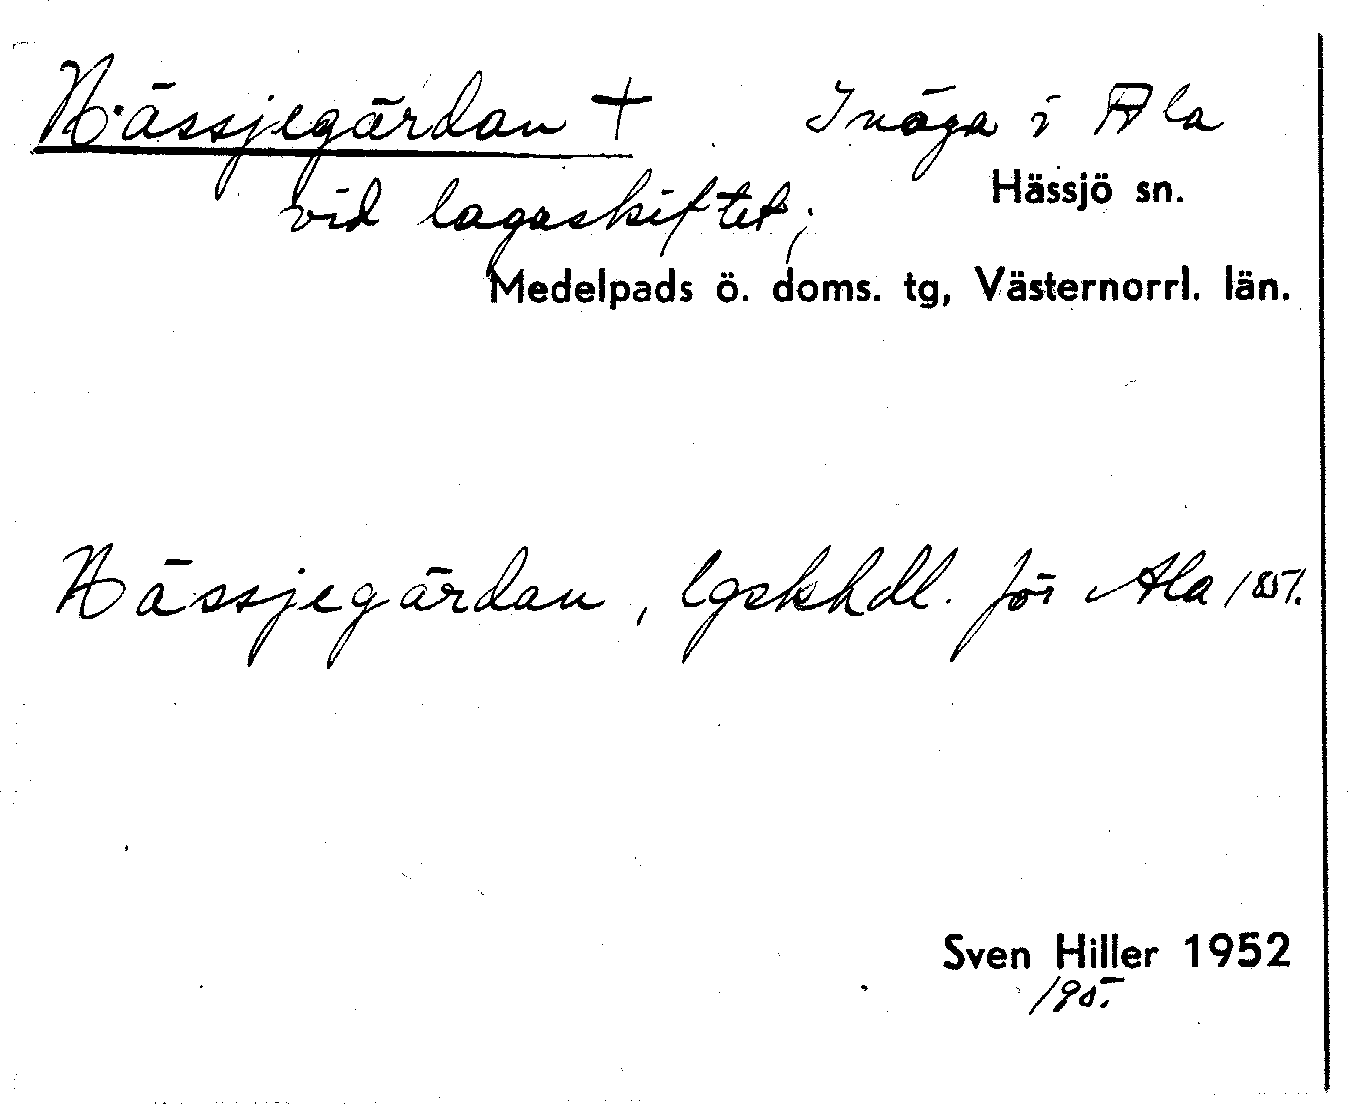 Hässjegärdan + Inäga i Ala
Hässjö sn.
vid lagaskiftet;
Medelpads ö. doms. tg, Västernorrl. län.
Hässjegärdan, lgskhdl. för Ala 1857.
Sven Hiller 1952